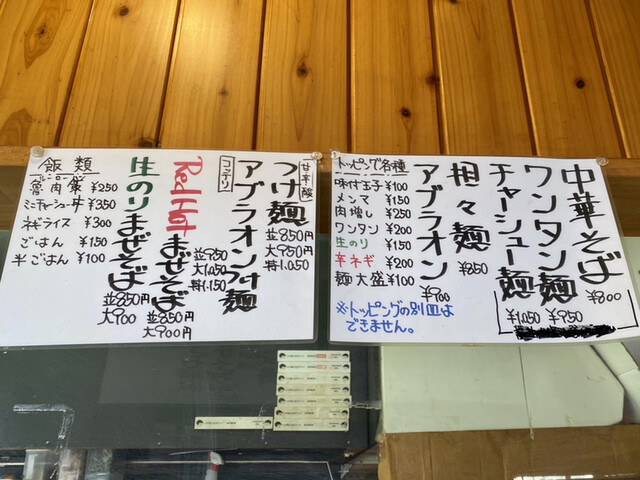 中華そば ¥800
ワンタン麺 ¥950
チャーシュー麺 ¥1,050
担々麺 ¥850
アブラオン ¥900
トッピング各種
味付玉子 ¥100
メンマ ¥150
肉増し ¥250
ワンタン ¥200
生のり ¥150
辛ネギ ¥200
麺大盛 ¥100
※トッピングの別皿は
できません。
甘辛酸 つけ麺
並850円
大950円
丼1,050
コッテリ アブラオンつけ麺
並950
大1,050
丼1,150
Red Hot まぜそば
並850円
大900円
生のりまぜそば
並850円
大900
飯類
ルーローハン
魯肉飯 ¥250
ミニチャーシュー丼 ¥350
ネギライス ¥300
ごはん ¥150
半ごはん ¥100